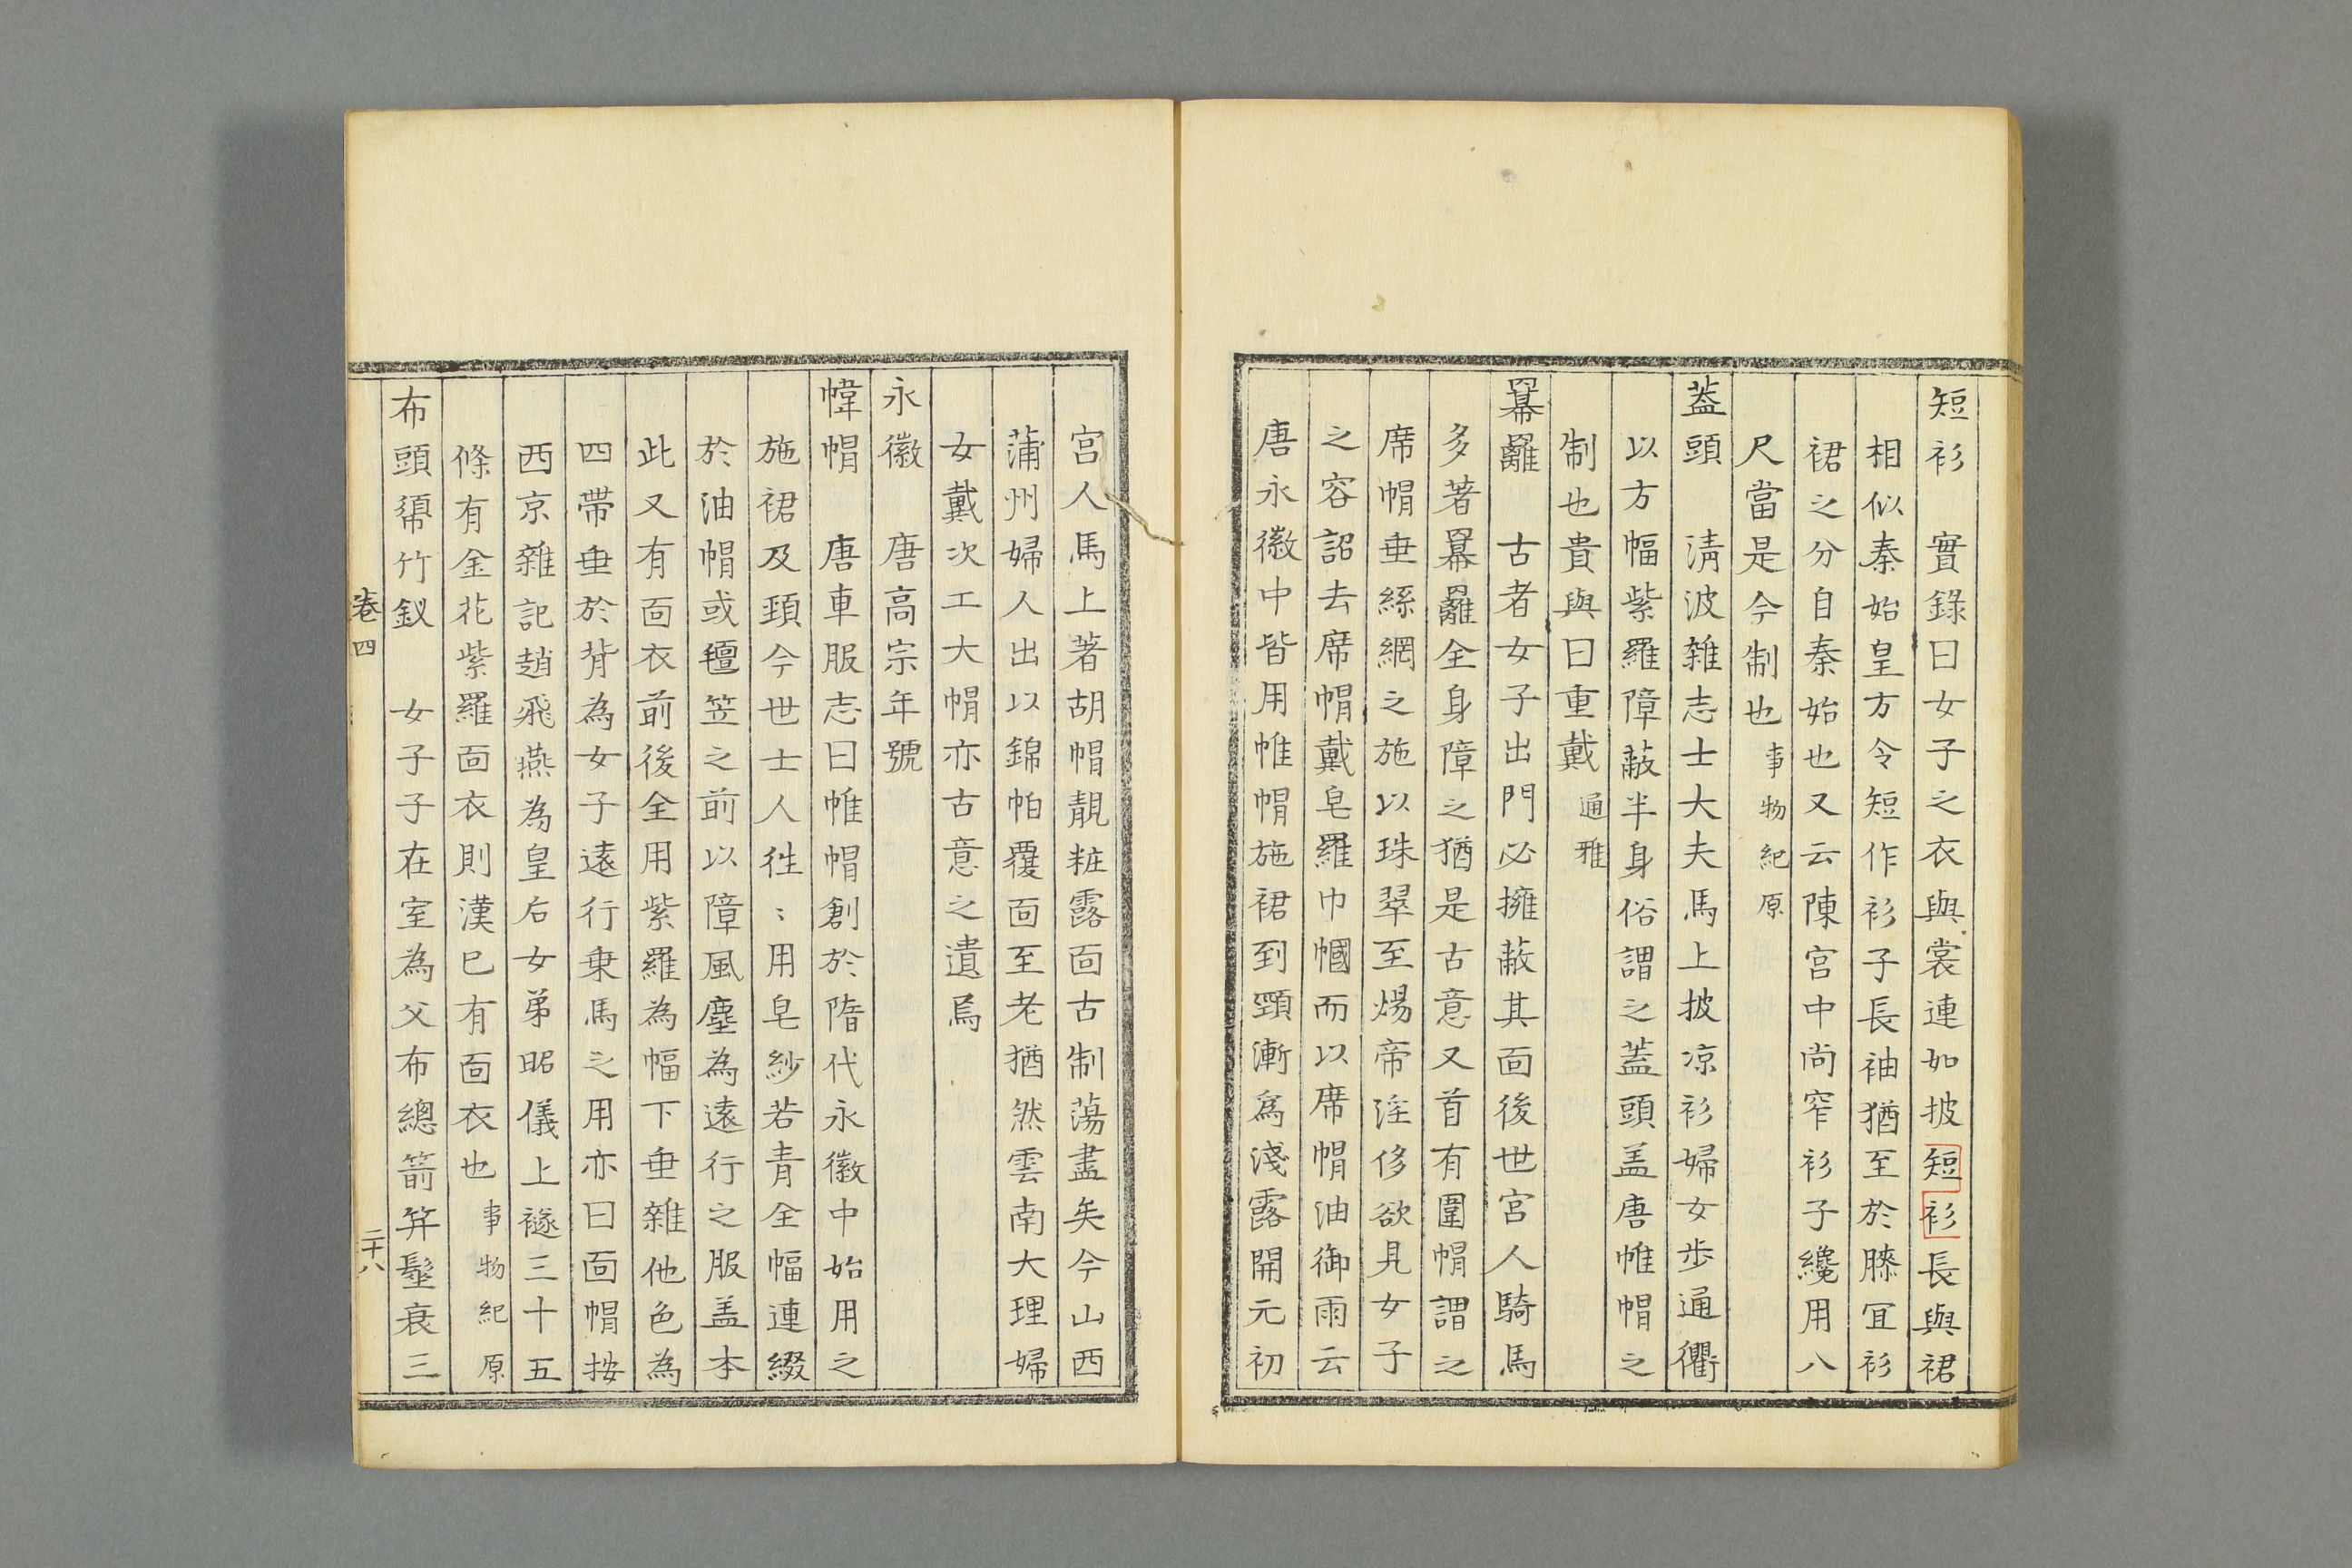 短衫　實錄曰女子之衣與裳連如披短衫長與裙
相似秦始皇方令短作衫子長袖猶至於膝冝衫
裙之分自秦始也又云陳宫中尚窄衫子纔用八
尺當是今制也事物紀原
葢頭　淸波雜志士大夫馬上披凉衫婦女步通衢
以方幅紫羅障蔽半身俗謂之葢頭盖唐帷帽之
制也貴與曰重戴通雅
羃䍦　古者女子出門必擁蔽其面後世宫人騎馬
多著羃䍦全身障之猶是古意又首有圍帽謂之
席帽垂絲網之施以珠翠至煬帝淫侈欲見女子
之容詔去席帽戴皂羅巾幗而以席帽油御雨云
唐永徽中皆用帷帽施裙到頸漸爲淺露開元初
宫人馬上著胡帽靚粧露面古制蕩盡矣今山西
蒲州婦人出以錦帕覆面至老猶然雲南大理婦
女戴次工大帽亦古意之遺焉
永徽　唐高宗年號
幃帽　唐車服志曰帷帽創於隋代永徽中始用之
施裙及頚今世士人徃〻用皂紗若青全幅連綴
於油帽或氊笠之前以障風塵為遠行之服盖本
此又有面衣前後全用紫羅為幅下垂雜他色為
四帶垂於背為女子遠行乗馬之用亦曰面帽按
西京雜記趙飛燕為皇后女弟昭儀上襚三十五
條有金花紫羅面衣則漢已有面衣也事物紀原
布頭𢄼竹釵　女子子在室為父布總箭笄髽衰三
卷四
二十八